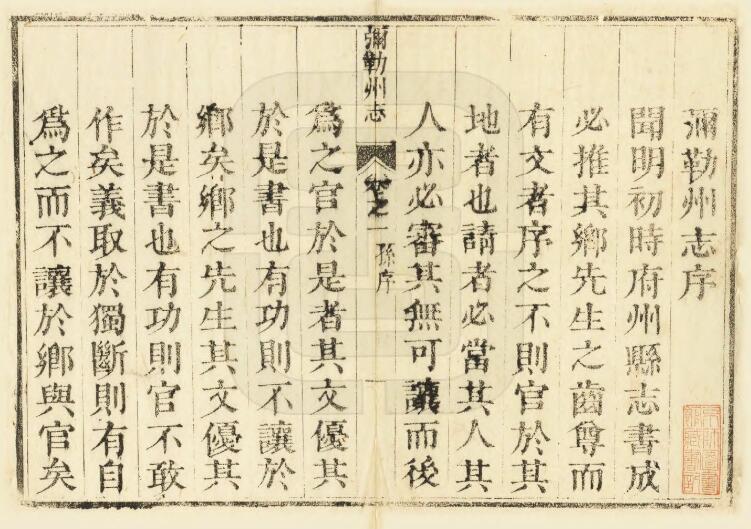 彌勒州志序
聞明初時府州縣志書成
必推其鄉先生之齒尊而
有文者序之不則官於其
地者也請者必當其人其
人亦必審其無可讓而後
彌勒州志
卷之一
孫序
為之官於是者其文優其
於是書也有功則不讓於
鄉矣鄉之先生其文優其
於是書也有功則官不敢
作矣義取於獨斷則有自
為之而不讓於鄉與官矣